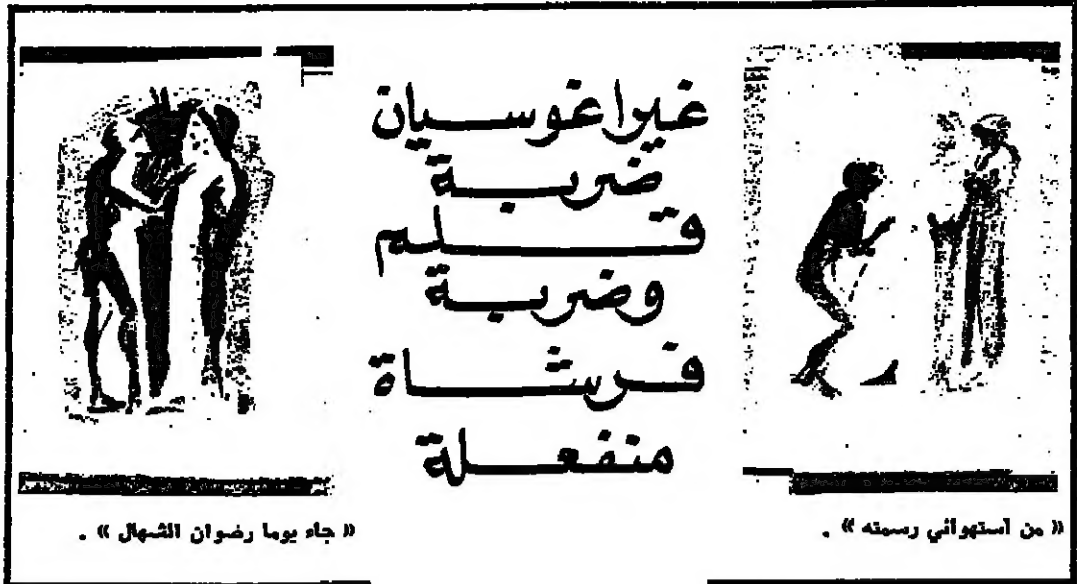 غيراغوسيان
ضربة
قلم
وضربة
فرشاة
منفعلة
« من استهواني رسمته » .
« جاء يوما رضوان الشهال » .